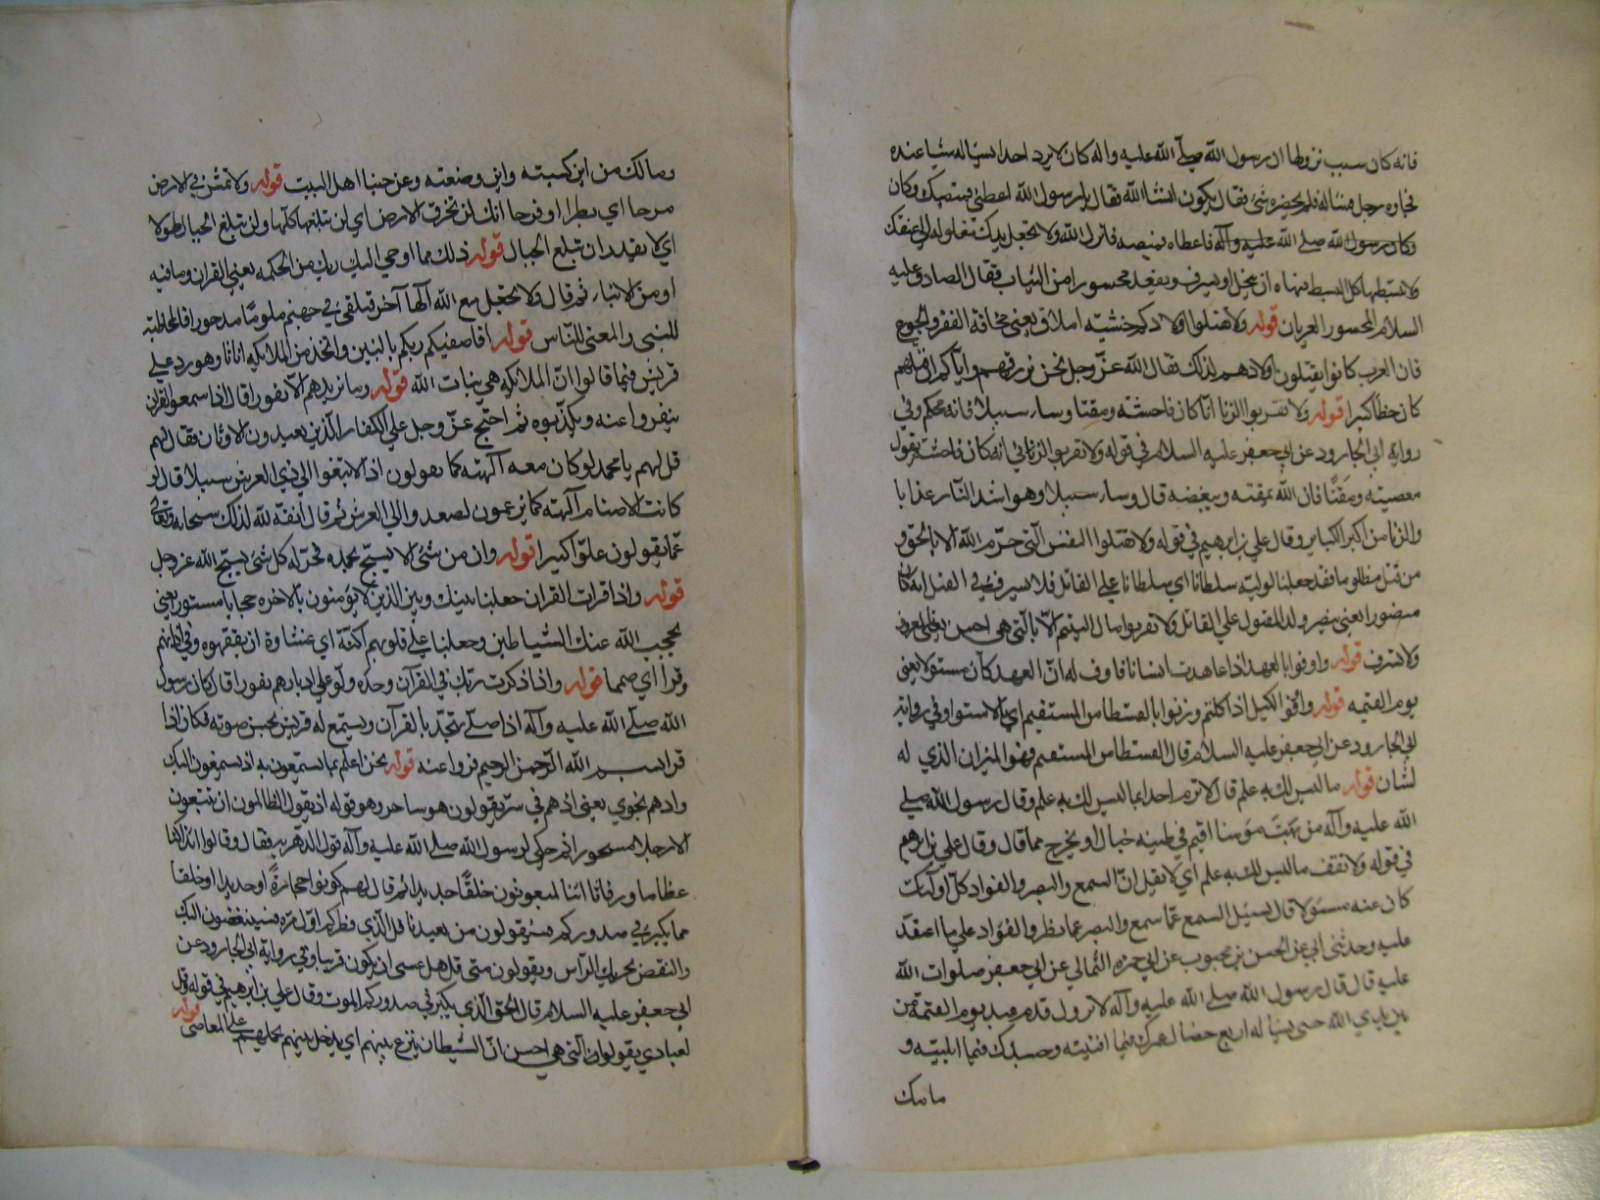 فانه كان سبب نزولها ان رسول الله صلى الله عليه واله كان لا يرد احدا يساله شيا عنده
فجاوه رجل فساله فلم يحضره شئ فقال يكون انشا الله فقال يا رسول الله اعطنى قميصك وكان
وكان رسول الله صلى الله عليه وآله فاعطاه قميصه فانزل الله ولا تجعل يدك مغلوله الى عنقك
ولا تبسطها كل البسط فنهاه ان يبخل او يسرف ويقعد محسورا من الثياب فقال الصادق عليه
السلام المحسور العريان قوله ولا تقتلوا اولادكم خشية املاق يعنى مخافة الفقر والجوع
فان العرب كانوا يقتلون اولادهم لذلك فقال الله عزّ وجل نحن نرزقهم واياكم ان قتلهم
كان خطأ كبيرا قوله ولا تقربوا الزنا انّه كان فاحشة ومقتا وسا سبيلا فانه محكم وفى
رواية ابى الجارود عن ابى جعفر عليه السلام فى قوله ولا تقربوا الزنا انه كان فاحشة يقول
معصيته ومَقتًا فان الله يمقته ويبغضه قال وسا سبيلا وهو اشد النار عذابا
والزنا من اكبر الكباير وقال علي بن ابرهيم في قوله ولا تقتلوا النفس التى حرّم الله الا بالحق و
من قتل مظلوما فقد جعلنا لوليه سلطانا اي سلطانا علي القاتل فلا يسرف في القتل انه كان
منصورا يعنى ينصر ولد المقتول علي القاتل ولا تقربوا مال اليتيم الّا بالتى هى احسن يعنى بالمعروف
ولا تسرف قوله واوفوا بالعهد اذا عاهدت انسانا فاوف له انّ العهد كان مسئولا يعنى
يوم القيمه قوله واوفوا الكيل اذا كلتم وزنوا بالقسطاس المستقيم اي بالاستوا وفي رواية
ابى الجارود عن ابى جعفر عليه السلام قال القسطاس المستقيم فهو الميزان الذي له
لسان قوله ما ليس لك به علم قال لا ترم احدا بما ليس لك به علم وقال رسول الله صلى
الله عليه وآله من بَهَتَ مؤمنا اقيم في طينة خبال او يخرج مما قال وقال علي بن ابرهيم
في قوله ولا تقف ما ليس لك به علم اي لا تقل انّ السمع والبصر والفواد كلّ اولئك
كان عنه مسئولا قال يسئل السمع عمّا سمع والبصر عما نظر والفؤاد علي ما اعتقد
عليه وحدثنى ابى عن الحسن بن محبوب عن ابى حمزه الثمالي عن ابى جعفر صلوات الله
عليه قال قال رسول الله صلى الله عليه وآله لا تزول قدم عبد يوم القيمة من
بين يدي الله حتى يسأله اربع خصال عمرك فيما افنيته وجسدك فيما ابليته و
مامك
ومالك من اين كسبته واين وضعته وعن حبنا اهل البيت قوله ولا تمش في الارض
مرحا اي بطرا او فرحا انك لن تخرق الارض اي لن تبلغها كلّها ولن تبلغ الجبال طولا
اي لا تقدر ان تبلغ الجبال قوله ذلك مما اوحي اليك ربك من الحكمه يعني القران وما فيه
او من الانباء ثم قال ولا تجعل مع الله الها آخر فتلقى في جهنم ملومًا مدحورا فالمخاطبة
للنبى والمعنى للناس قوله افاصفيكم ربكم بالبنين واتخذ من الملايكه اناثا وهو رد علي
قريش فيما قالوا انّ الملايكه هي بنات الله قوله وما يزيدهم الّا نفورا قال اذا سمعوا القران
ينفروا عنه ويكذّبوه ثم احتج عزّ وجل علي الكفار الّذين يعبدون الاوثان فقال لهم
قل لهم يا محمد لو كان معه آلهة كما يقولون اذا لابتغوا الي ذي العرش سبيلا قال لو
كانت الاصنام آلهة كما يزعمون لصعدوا الي العرش ثم قال انفة لله لذلك سبحانه وتعالى
عمّا يقولون علوّا كبيرا قوله وان من شئ الا يسبّح بحمده فحركة كل شئ يسبح الله عز وجل
قوله واذا قرات القران جعلنا بينك وبين الذين لا يؤمنون بالاخره حجابا مستورا يعنى
يحجب الله عنك الشياطين وجعلنا علي قلوبهم اكنّة اي غشاوة ان يفقهوه وفي اذانهم
وقرا اي صمما قوله واذا ذكرت ربّك في القرآن وحده ولّو علي ادبارهم نفورا قال كان رسول
الله صلّى الله عليه وآله اذا صلّى تهجّد بالقرآن ويستمع له قريش لحسن صوته فكان اذا
قرا بسم الله الرّحمن الرحيم فروا عنه قوله نحن اعلم بما يستمعون به اذ يستمعون اليك
واذ هم نجوي يعنى اذ هم في سرّ يقولون هو ساحر وهو قوله اذ يقول الظالمون ان تتبعون
الا رجلا مسحورا ثم حكى لرسول الله صلى الله عليه وآله قول الدّهريه فقال وقالوا ائذا كنا
عظاما ورفاتا ائنا لمبعوثون خلقًا جديدا ثم قال لهم كونوا حجارةً او حديدا او خلقا
مما يكبر في صدوركم فسيقولون من يعيدنا قل الّذي فطركم اول مرّه فسينغضون اليك
والنغض تحريك الرأس ويقولون متى قل هل عسى ان يكون قريبا وفي رواية ابى الجارود عن
ابى جعفر عليه السلام قال الخلق الّذي يكبر في صدوركم الموت وقال علي بن ابرهيم في قوله وقل
لعبادي يقولوا التى هي احسن انّ الشيطان ينزغ بينهم اي يدخل بينهم يحملهم على المعاصى قوله